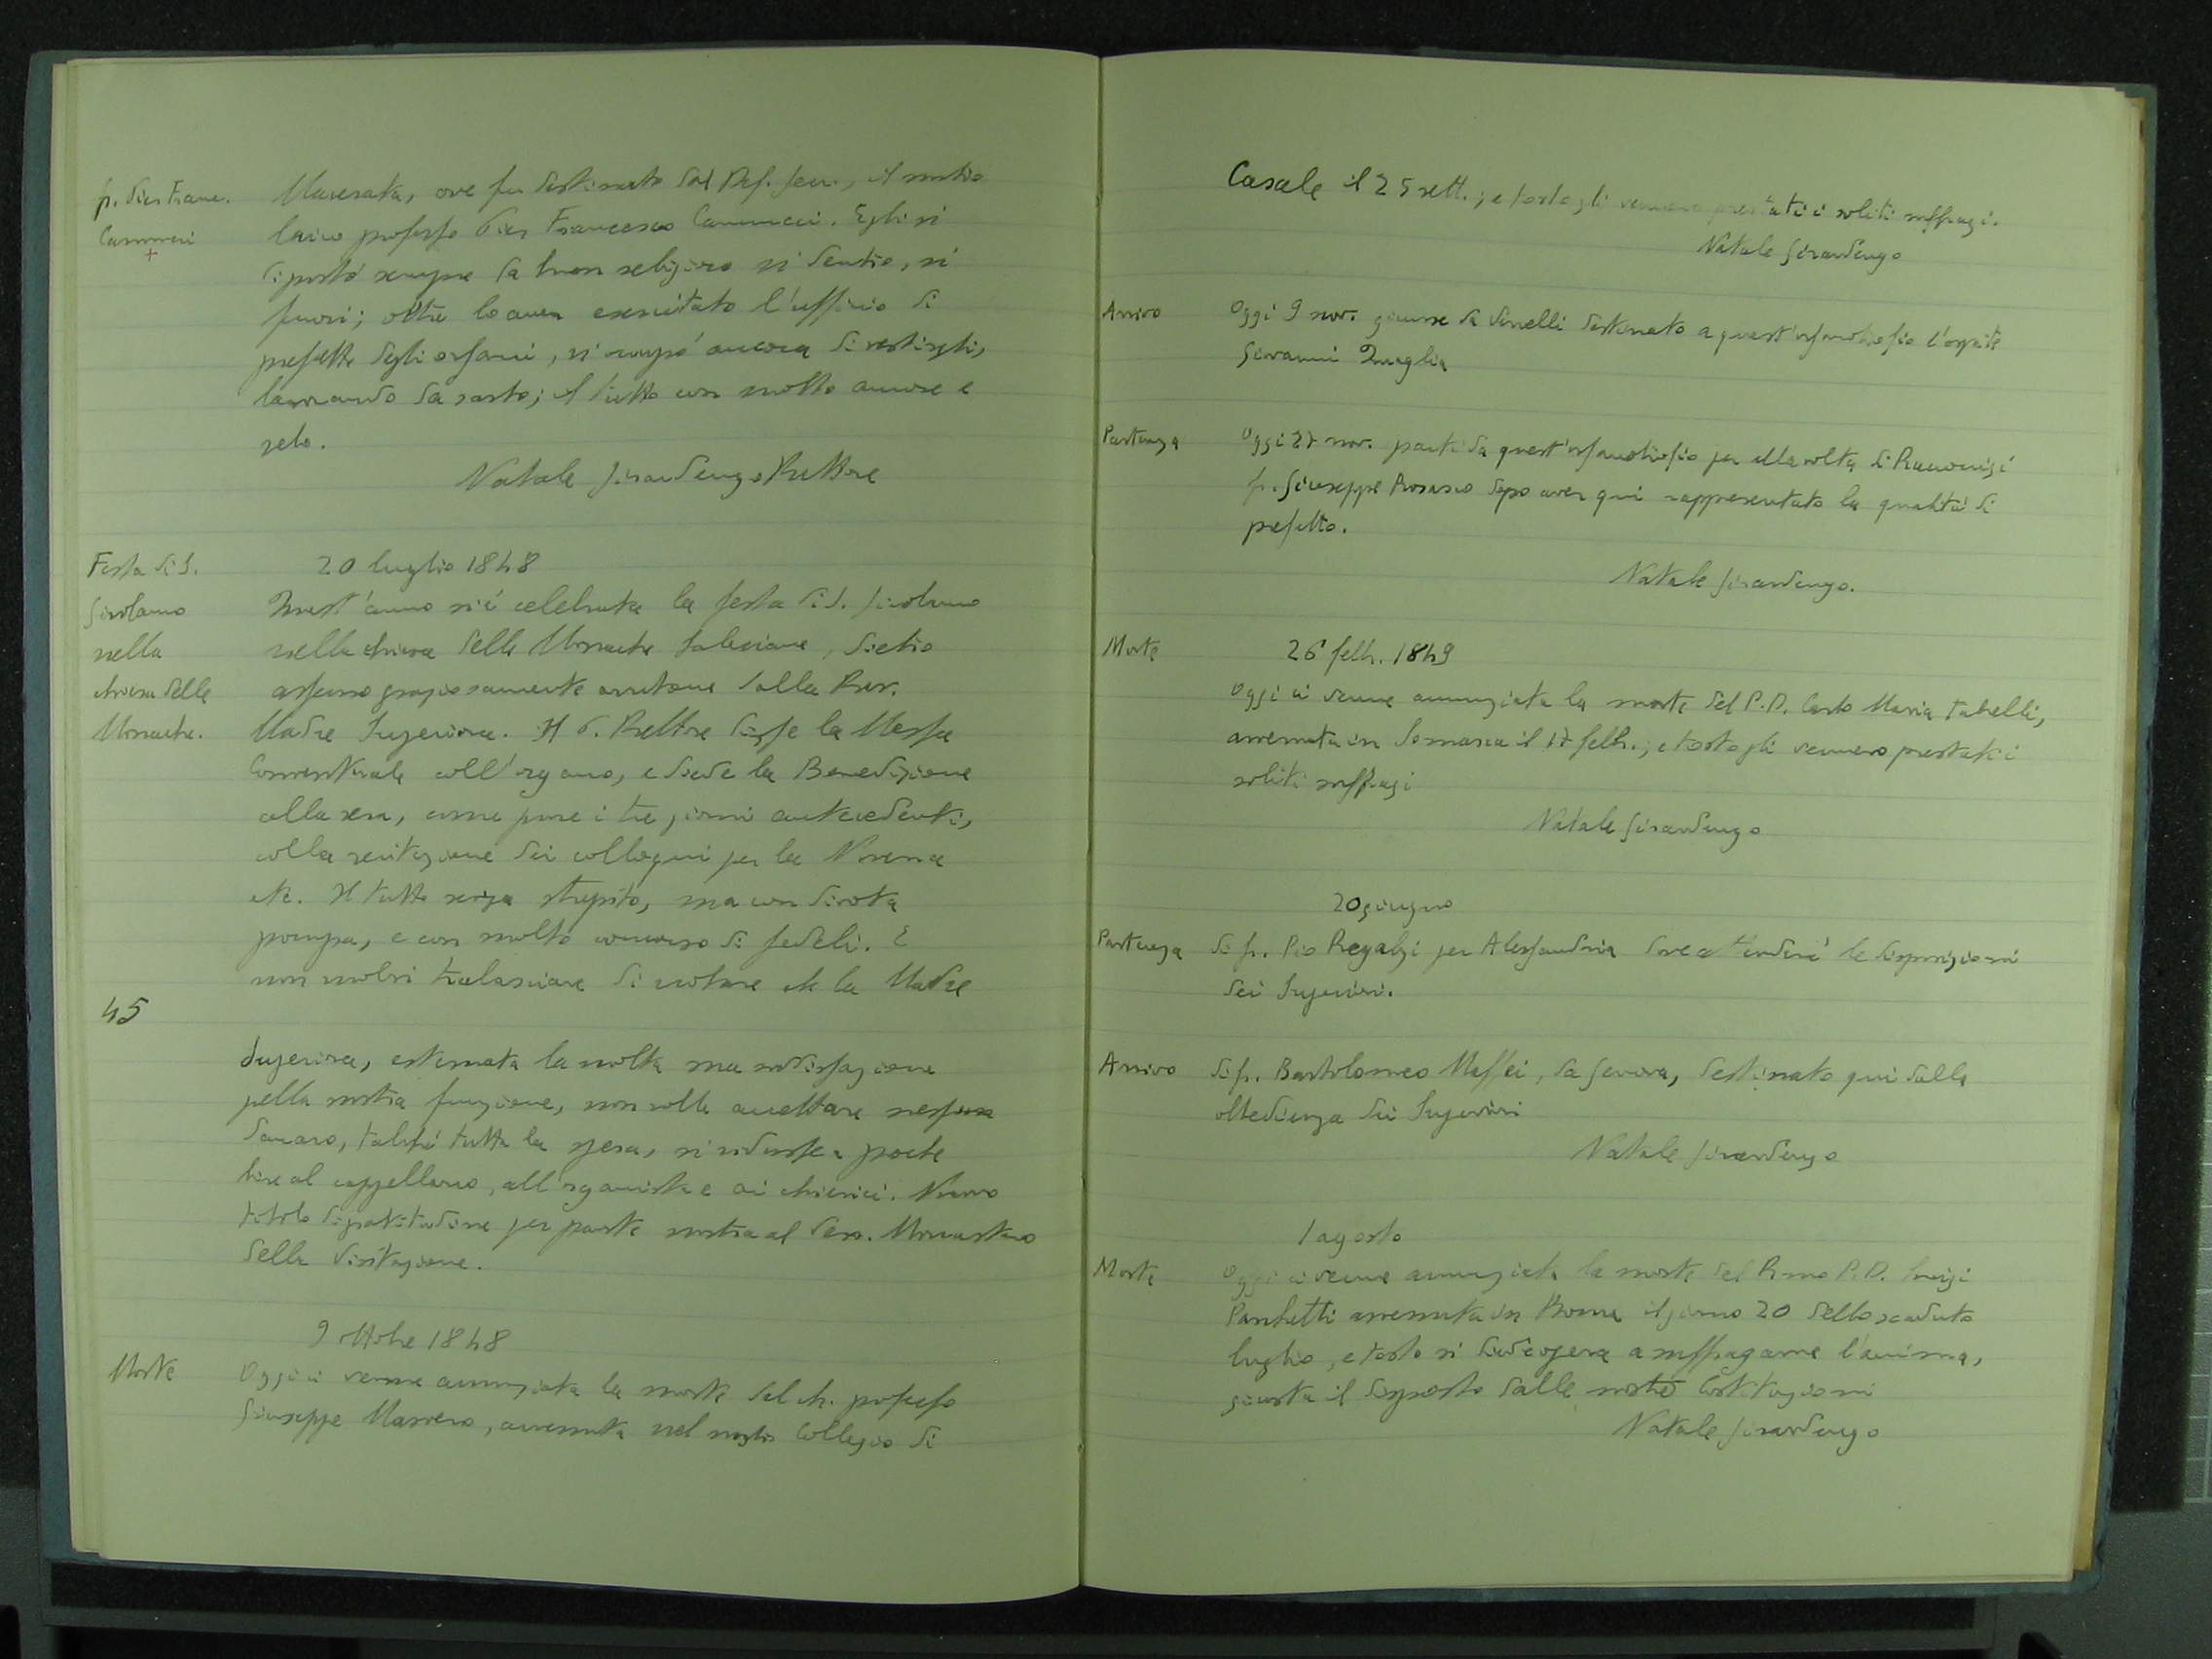 fr. Pier Franc.
Cammuci
+
Macerata, ove fu destinato dal Def. gen., il nostro
laico professo Pier Francesco Cammucci. Egli si
diportò sempre da buon religioso sì dentro, sì
fuori; oltre lo aver esercitato l'ufficio di
prefetto degli orfani, si occupò ancora di vestirgli,
lavorando da sarto; il tutto con molto amore e
zelo.
Natale Girardengo Rettore
Festa di S.
Girolamo
nella
chiesa delle
Monache.
20 luglio 1848
Quest'anno si è celebrata la festa di S. Girolamo
nella chiesa delle Monache Salesiane, dietro
assenso graziosamente avutone dalla Rev.
Madre Superiora. Il P. Rettore disse la Messa
Conventuale coll'organo, e diede la Benedizione
alla sera, come pure i tre giorni antecedenti,
colla recitazione dei colloqui per la Novena
etc. Il tutto senza strepito, ma con divota
pompa, e con molto concorso di fedeli. E
non vuolsi tralasciare di notare che la Madre
45
Superiora, esternata la molta sua soddisfazione
pella nostra funzione, non volle accettare nessun
danaro, talché tutta la spesa, si ridusse a poche
lire al cappellano, all'organista e ai chierici. Nuovo
titolo di gratitudine per parte nostra al Ven. Monastero
della Visitazione.
9 ottobre 1848
Morte
Oggi ci venne annunziata la morte del ch. professo
Giuseppe Massero, avvenuta nel nostro Collegio di
Casale il 25 sett.; e tosto gli vennero prestati i soliti suffragi.
Natale Girardengo
Arrivo
Oggi 9 nov. giunse da Vercelli destinato a quest'orfanotrofio l'ospite
Giovanni Quaglia
Partenza
Oggi 27 nov. partì da quest'orfanotrofio per alla volta di Racconigi
fr. Giuseppe Rosasco dopo aver qui rappresentato la qualità di
prefetto.
Natale Girardengo.
Morte
26 febb. 1849
Oggi ci venne annunziata la morte del P.D. Carlo Maria Fabelli,
avvenuta in Somasca il 17 febb.; e tosto gli vennero prestati i
soliti suffragi
Natale Girardengo
20 giugno
Partenza
di fr. Pio Regalzi per Alessandria dove attenderà le disposizioni
dei Superiori.
Arrivo
di fr. Bartolomeo Maffei, da Genova, destinato qui dalla
obbedienza dei Superiori
Natale Girardengo
1 agosto
Morte
Oggi ci venne annunziata la morte del Rmo P.D. Luigi
Parchetti avvenuta in Roma il giorno 20 dello scaduto
luglio, e tosto si diede opera a suffragarne l'anima,
giusta il disposto dalle nostre Costituzioni
Natale Girardengo